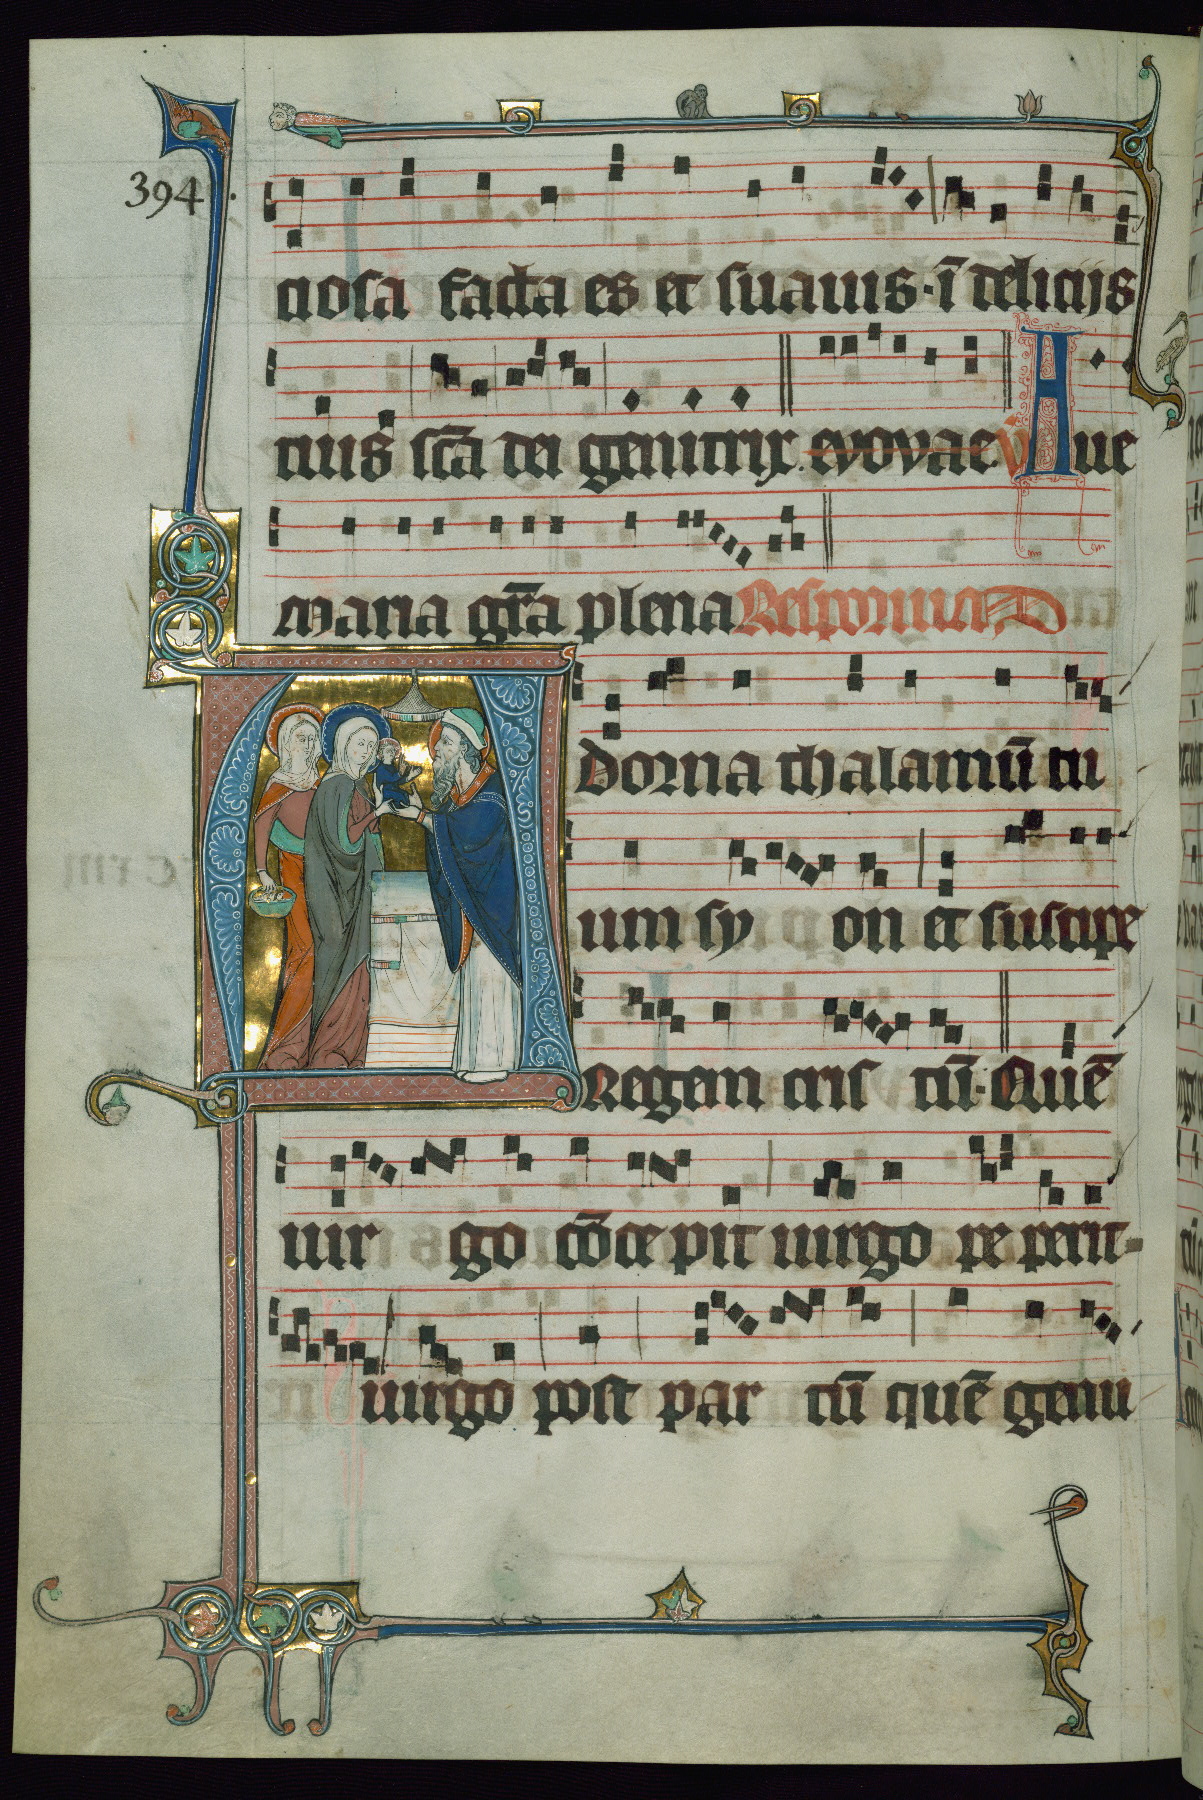 394.
ciosa facta es et suauis · ī deliciis
tuis sc̄a dei genitrix. evovae. V Aue
maria gr̄a plena Responsua
Adorna thalamū tu
um sy on et suscipe
Regem cris tū · Quē
uir go cōce pit uirgo pe perit
uirgo post par tū quē genu